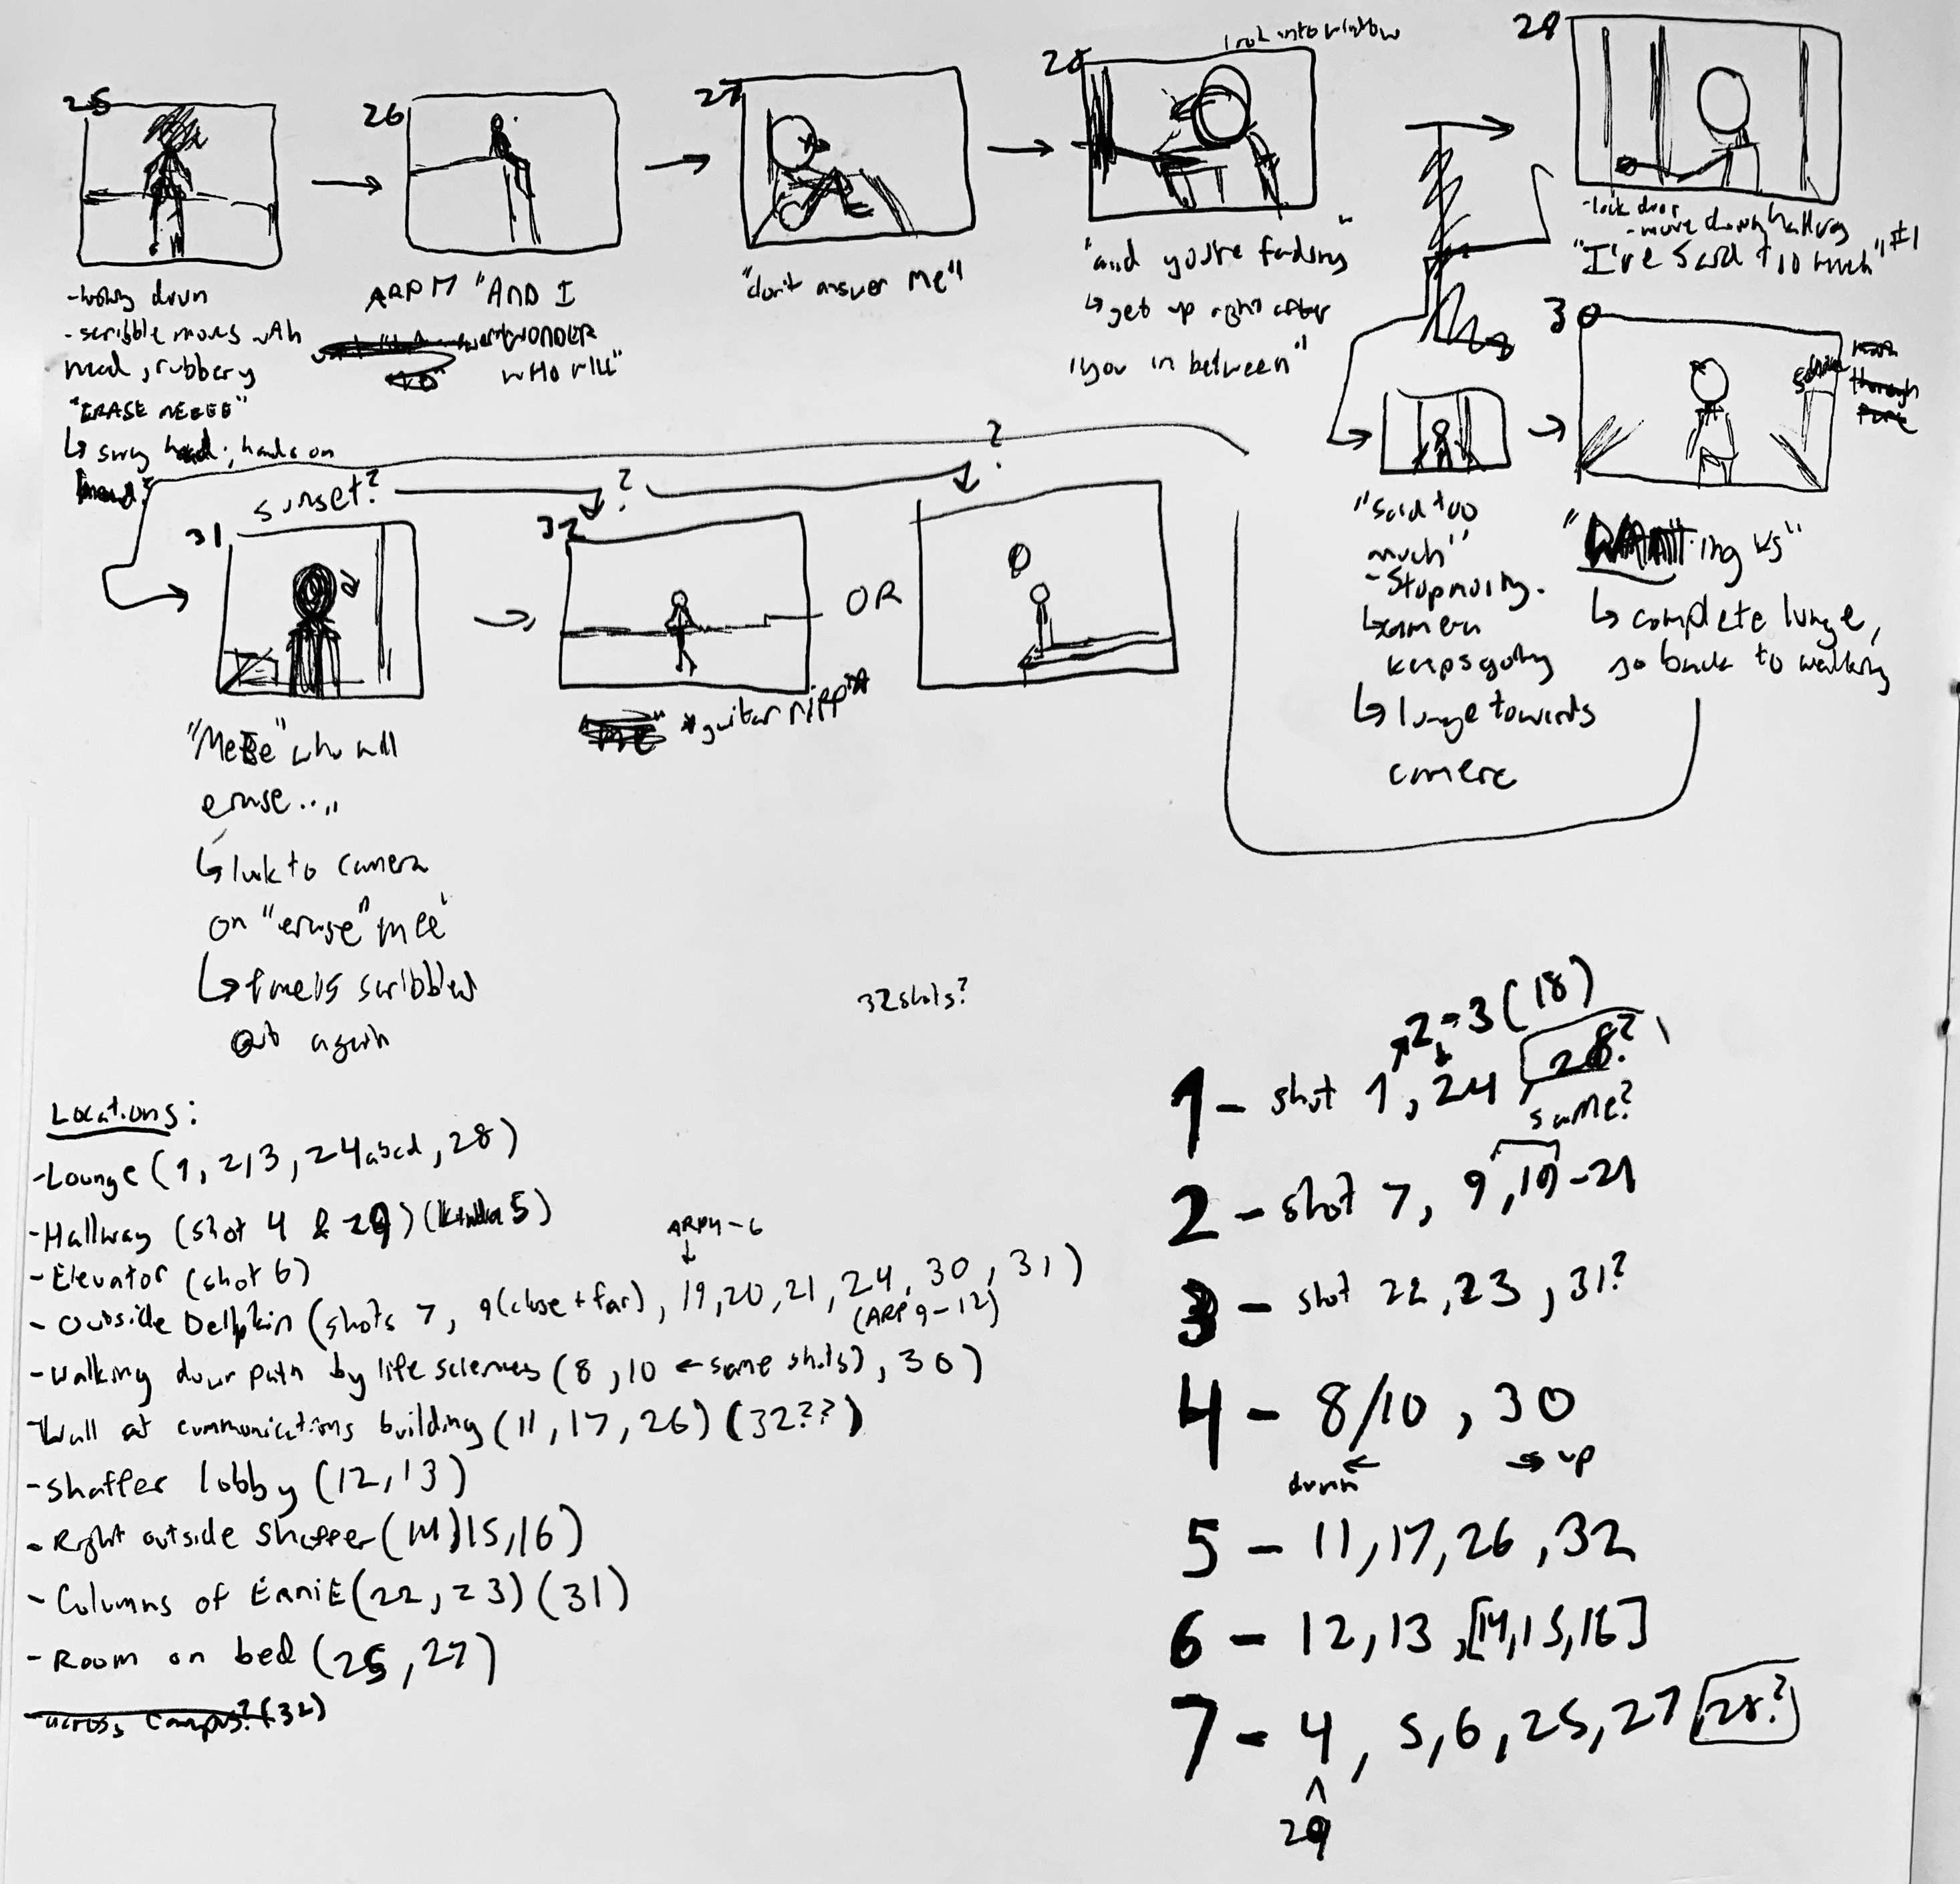 25
- scribble moves with
head, rubbery
"ERASE MEEEE"
↳ sway head; hands on
head?
26
ARPM "AND I
WONDER
WHO WILL"
27
"don't answer me"
28
look into window
"and you're fading"
↳ get up right after
"you in between"
29
- lock door
- move down hallway
"I've said too much" #1
"Said too
much"
- Stop moving.
↳ camera
keeps going
↳ lunge towards
camera
30
ing us"
↳ complete lunge,
go back to walking
?
sunset?
?
31
"Meee" who will
erase...."
↳ look to camera
on "erase" mee"
↳ face is scribbled
out again
32
OR
*guitar riff*
32 shots?
Locations:
- Lounge (1, 2, 3, 24abcd, 28)
- Hallway (shot 4 & 29) (kinda 5)
- Elevator (shot 6)
ARPM - 6
↓
- Outside Dellplain (shots 7, 9 (close + far), 19, 20, 21, 24, 30, 31)
(ARP 9 - 12)
- Walking down path by life sciences (8, 10 ← same shots), 30)
- Wall at communications building (11, 17, 26) (32??)
- Shaffer lobby (12, 13)
- Right outside Shaffer (14) 15, 16)
- Columns of ErniE (22, 23) (31)
- Room on bed (25, 27)
- across campus? (32)
2 = 3 (18)
1 - shot 1, 24, 28?
same?
2 - shot 7, 9, 19 - 21
3 - shot 22, 23, 31?
4 - 8/10, 30
down ← → up
5 - 11, 17, 26, 32
6 - 12, 13, [14, 15, 16]
7 - 4, 5, 6, 25, 27 28?
^
29